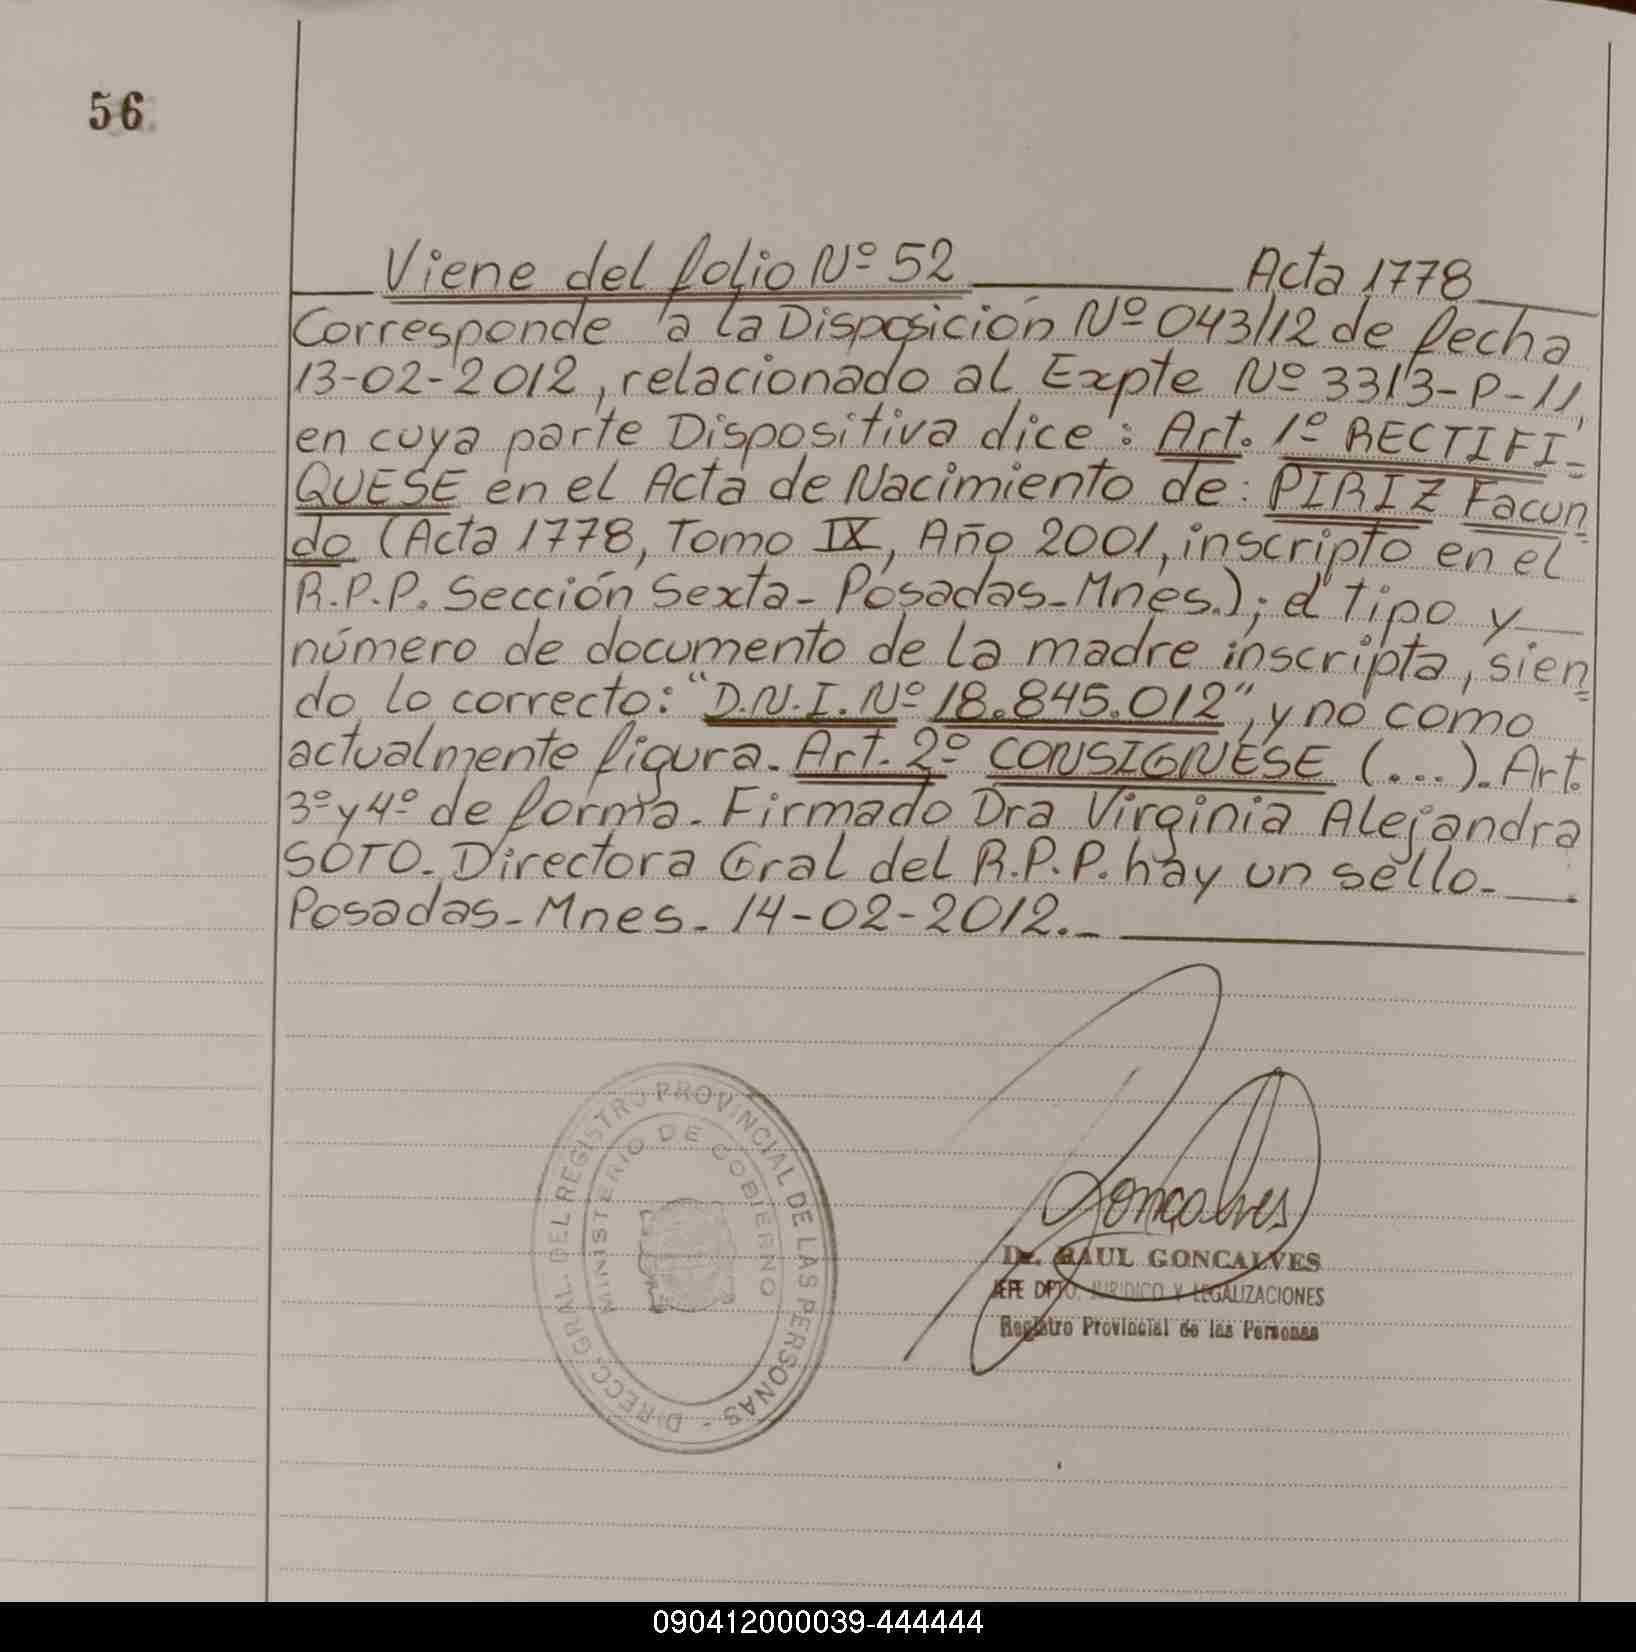 56
Viene del folio Nº 52 Acta 1778
Corresponde a la Disposición Nº 043/12 de fecha
13-02-2012, relacionado al Expte Nº 3313-P-11,
en cuya parte Dispositiva dice: Art. 1º RECTIFI=
QUESE en el Acta de Nacimiento de: PIRIZ Facun=
do (Acta 1778, Tomo IX, Año 2001, inscripto en el
R.P.P. Sección Sexta- Posadas-Mnes.); el tipo y
número de documento de la madre inscripta, sien=
do lo correcto: "D.N.I. Nº 18.845.012", y no como
actualmente figura. Art. 2º CONSIGNESE (...). Art.
3º y 4º de forma. Firmado Dra Virginia Alejandra
SOTO. Directora Gral del R.P.P. hay un sello.
Posadas-Mnes. 14-02-2012.-
DIRECC. GRAL. DEL REGISTRO PROVINCIAL DE LAS PERSONAS -
MINISTERIO DE GOBIERNO
Goncalves
Dr. RAUL GONCALVES
JEFE DPTO. JURIDICO Y LEGALIZACIONES
Registro Provincial de las Personas
090412000039-444444